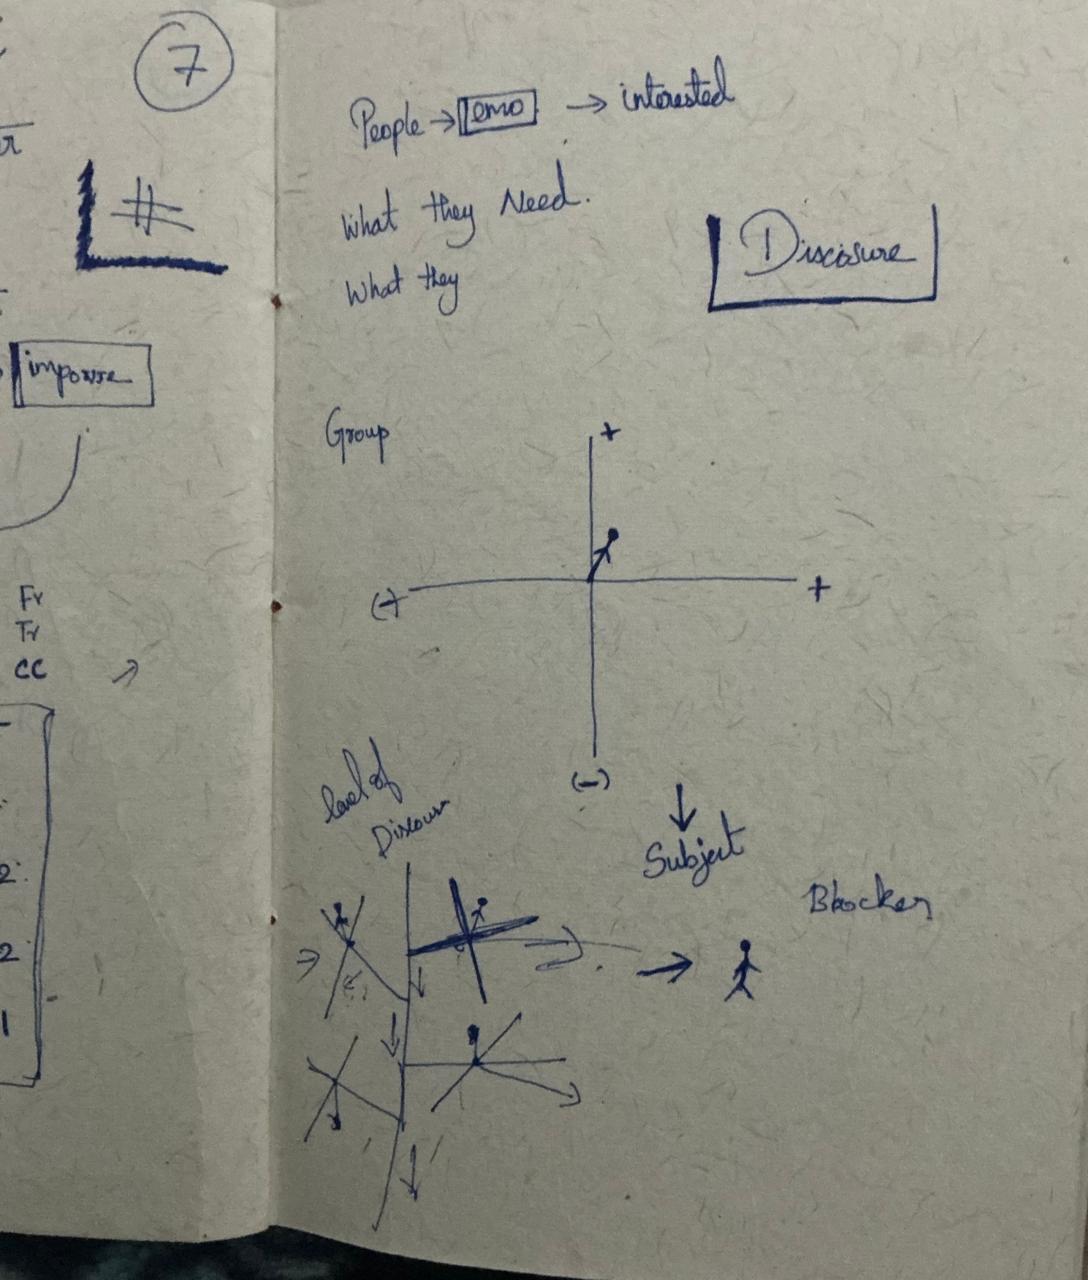 7
#
Fr
Tr
CC
2
2
1
People → emo → interested
What they Need.
What they
Discosure
Group
+
(-)
+
(-)
level of
Discour
Subject
Blocker